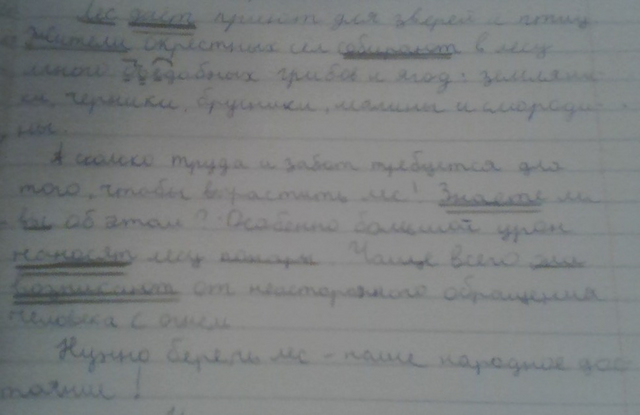 Лес даёт приют для зверей и птиц
Жители окрестных сел собирают в лесу
много съедобных грибов и ягод: земляни-
ки, черники, брусники, малины и смороди-
ны.
А сколько труда и забот требуется для
того, чтобы вырастить лес! Знаете ли
вы об этом? Особенно большой урон
наносят лесу пожары. Чаще всего они
возникают от неосторожного обращения
человека с огнем.
Нужно беречь лес - наше народное дос
тояние!